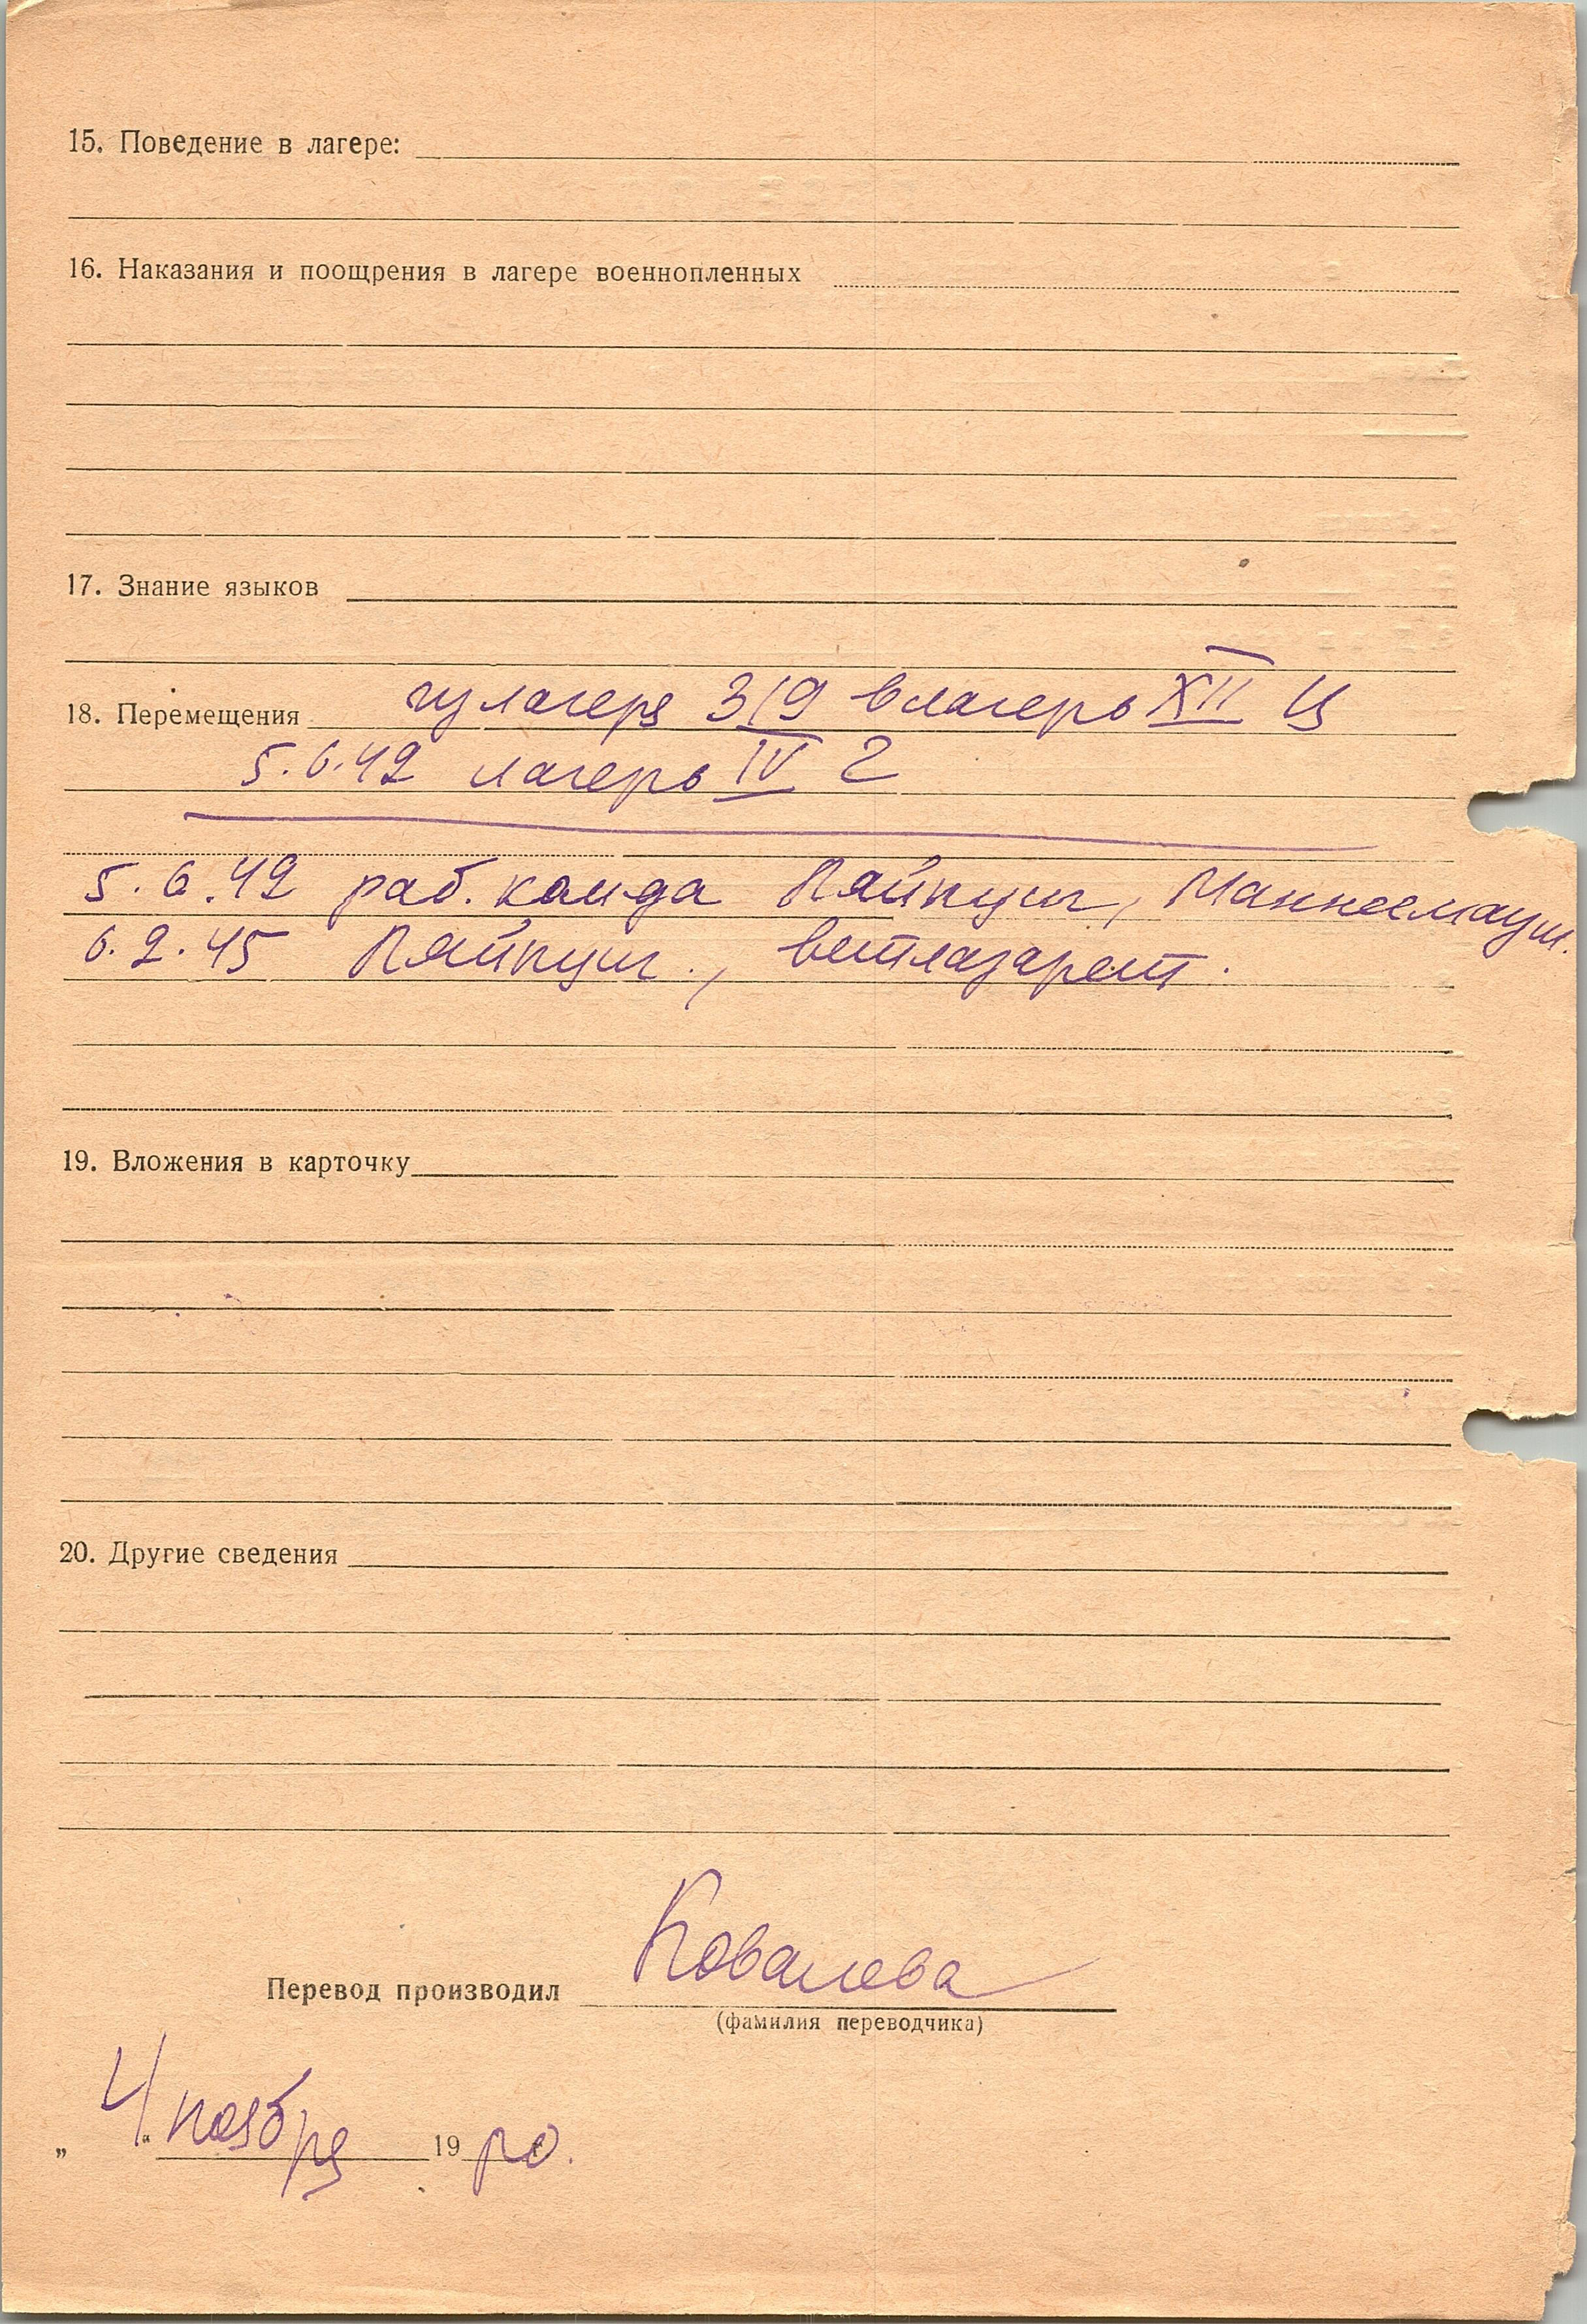 15. Поведение в лагере:
16. Наказания и поощрения в лагере военнопленных
17. Знание языков
18. Перемещения из лагеря 319 в лагерь XII Ц
5.6.42 лагерь IV Г
5.6.42 раб. коман­да Ляйпциг,
6.2.45 Ляйпциг., ветлазарет.
19. Вложения в карточку
20. Другие сведения
Перевод производил Ковалева
(фамилия переводчика)
„ 4 “ ноября 19